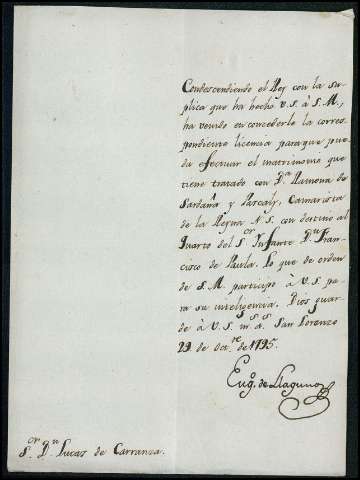 Condescendiendo el Rey con la su-
plica que ha hecho V.S. à S.M.,
ha venido en concederle la corres-
pondiente licencia para que pue-
da efectuar el matrimonio que
tiene tratado con D.ª Ramona de
Sardaña y Pascaly, Camarista
de la Reyna N.ª S. con destino al
Quarto del S.or Infante D.n Fran-
cisco de Paula. Lo que de orden
de S.M. participo à V.S. pa-
ra su inteligencia. Dios guar-
de à V.S. m.s a.s San Lorenzo
29 de Oct.re de 1795.
Eug.o de Llaguno
S.or D.n Lucas de Carranza.